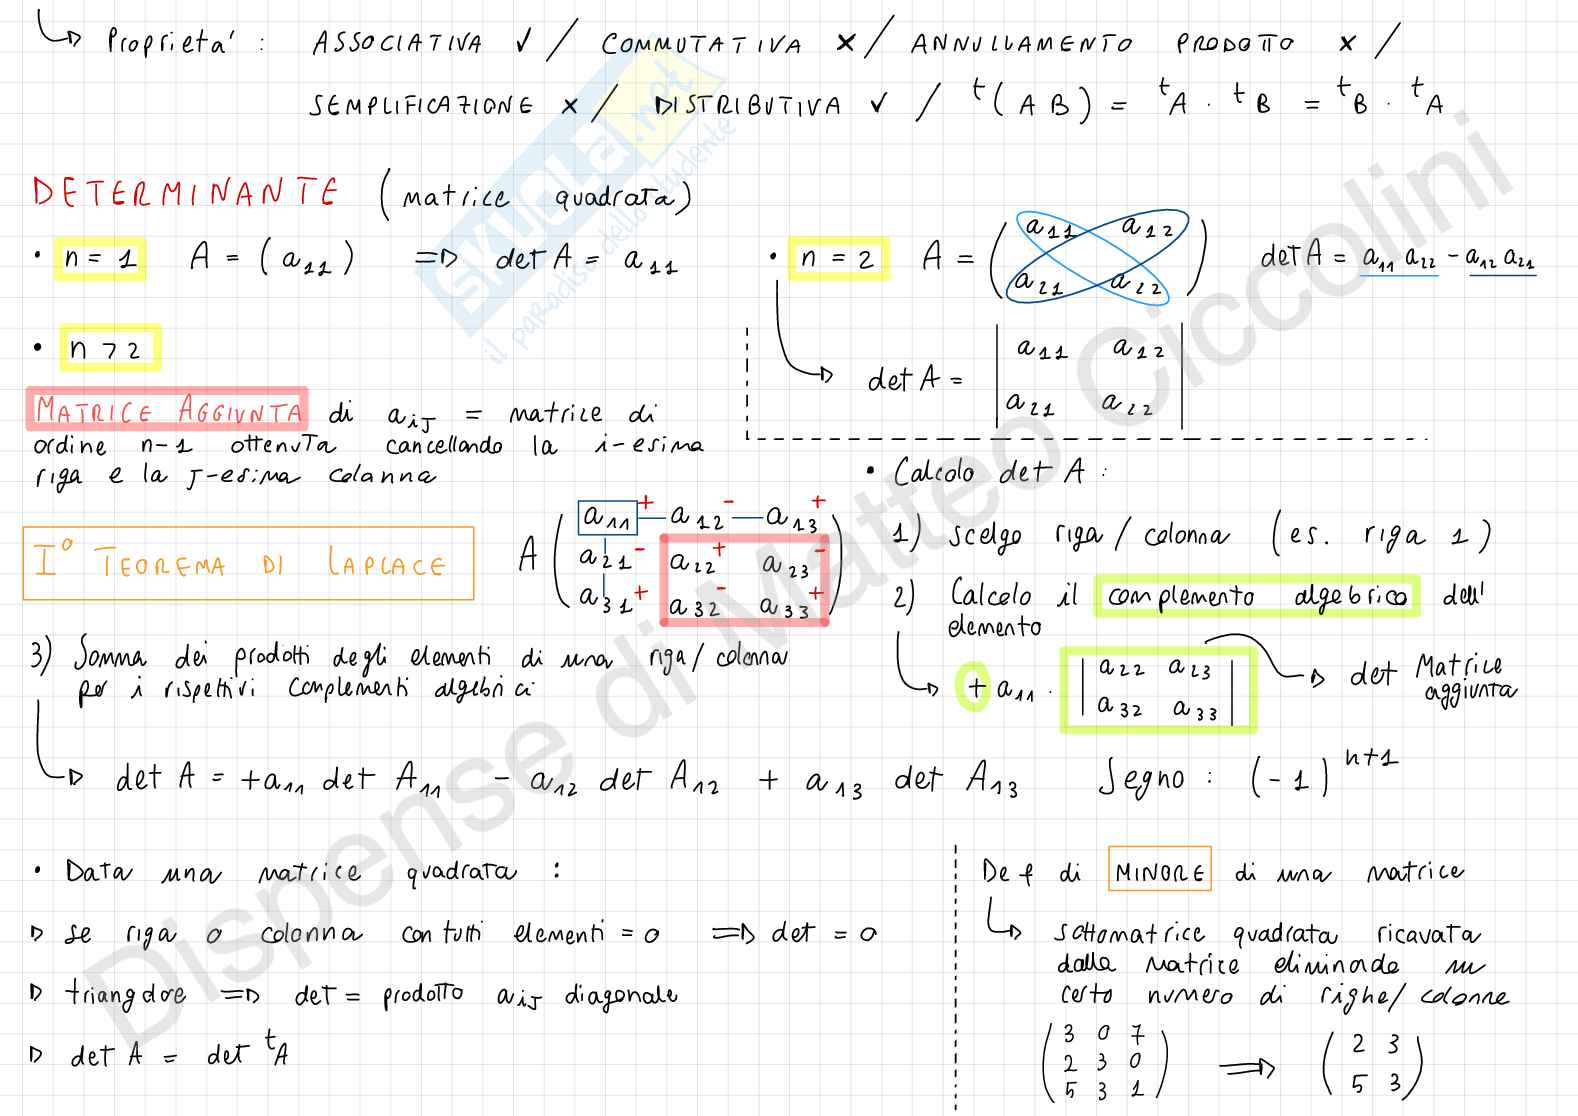 ↳ Proprieta' : ASSOCIATIVA ✓ / COMMUTATIVA × / ANNULLAMENTO PRODOTTO × /
SEMPLIFICAZIONE × / DISTRIBUTIVA ✓ / ᵗ(AB) = ᵗA · ᵗB = ᵗB · ᵗA
DETERMINANTE (matrice quadrata)
• n = 1 A = (a₁₁) ⇒ det A = a₁₁
• n = 2 A = ( a₁₁ a₁₂
a₂₁ a₂₂ ) det A = a₁₁ a₂₂ - a₁₂ a₂₁
↳ det A = | a₁₁ a₁₂
a₂₁ a₂₂ |
• n > 2
MATRICE AGGIUNTA di aᵢⱼ = matrice di
ordine n-1 ottenuta cancellando la i-esima
riga e la J-esima colonna
I° TEOREMA DI LAPLACE
A ( a₁₁ + a₁₂ - a₁₃ +
a₂₁ - a₂₂ + a₂₃ -
a₃₁ + a₃₂ - a₃₃ + )
• Calcolo det A :
1) scelgo riga / colonna (es. riga 1)
2) Calcolo il complemento algebrico dell'
elemento
↳ + a₁₁ · | a₂₂ a₂₃
a₃₂ a₃₃ | → det Matrice
aggiunta
3) Somma dei prodotti degli elementi di una riga / colonna
per i rispettivi complementi algebrici
↳ det A = +a₁₁ det A₁₁ - a₁₂ det A₁₂ + a₁₃ det A₁₃ Segno : (-1)ⁿ⁺¹
• Data una matrice quadrata :
▷ se riga o colonna con tutti elementi = 0 ⇒ det = 0
▷ triangolare ⇒ det = prodotto aᵢⱼ diagonale
▷ det A = det ᵗA
Def di MINORE di una matrice
↳ sottomatrice quadrata ricavata
dalla matrice eliminado un
certo numero di righe / colonne
( 3 0 7
2 3 0
5 3 1 ) ⇒ ( 2 3
5 3 )
SKUOLA.net
il paradiso dello studente
Dispense di Matteo Ciccolini